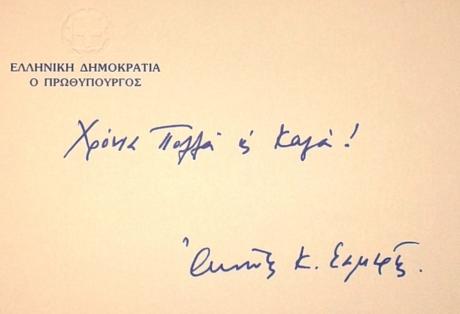 ΕΛΛΗΝΙΚΗ ΔΗΜΟΚΡΑΤΙΑ
Ο ΠΡΩΘΥΠΟΥΡΓΟΣ
Χρόνια Πολλά & Καλά!
Αντώνης Κ. Σαμαράς.